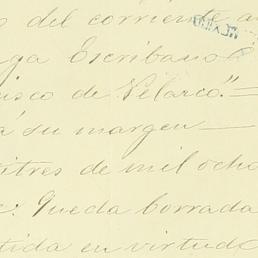 del corriente a
ga Escribano
isco de Velarco."—
á su margen—
itres de mil ocho
: Queda borrada
tida en virtud